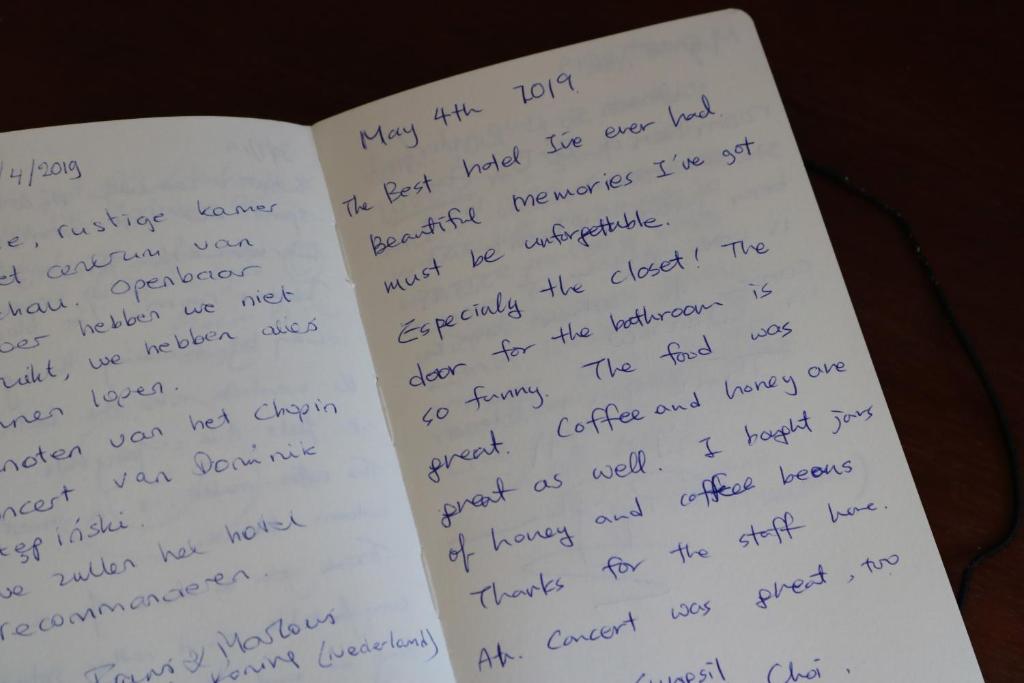 /4/2019
rustige kamer
centrum van
openbaar
hebben we niet
we hebben alles
lopen.
van het Chopin
van Dominik
zullen het hotel
recommanderen.
(Nederland)
May 4th 2019.
The Best hotel I've ever had.
Beautiful memories I've got
must be unforgettable.
Especialy the closet! The
door for the bathroom is
so funny. The food was
great. Coffee and honey are
great as well. I bought jars
of honey and coffee beans
Thanks for the staff here.
Ah. Concert was great, too
Choi.